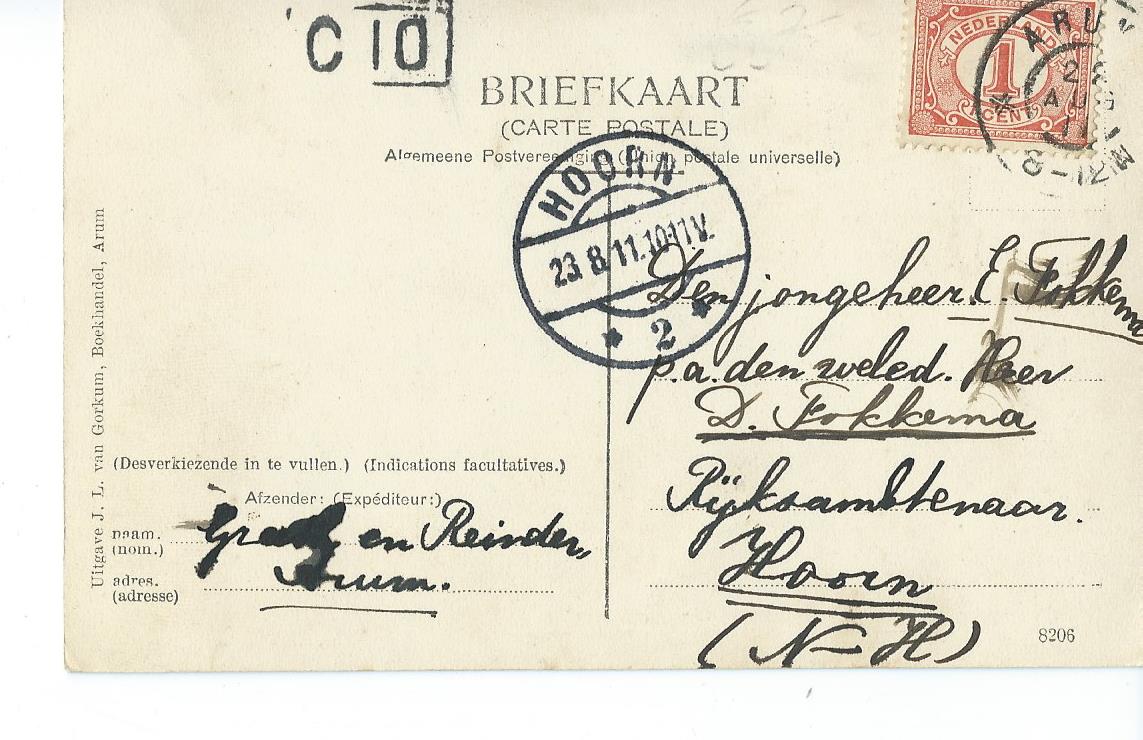 C 10
BRIEFKAART
(CARTE POSTALE)
Algemeene Postvereeniging (Union postale universelle)
NEDERLAND
1
CENT
ARUM
8-12 VM
HOORN
23. 8. 11. 10-11 V.
* 2 *
Den jongeheer E. Fokkema
p.a. den weled. Heer
D. Fokkema
Rijksambtenaar.
Hoorn
(N-H)
Uitgave J. L. van Gorkum, Boekhandel, Arum
(Desverkiezende in te vullen.) (Indications facultatives.)
Afzender: (Expéditeur:)
naam.
(nom.)
en Reinder,
adres.
(adresse)
Arum.
8206